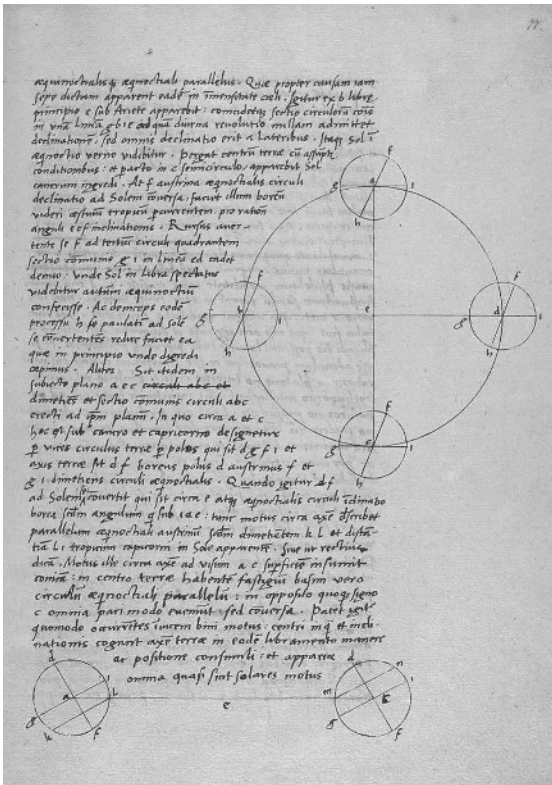 æquinoctialisque æqnoctiali parallelus. Quae propter causam iam
sepe dictam apparent eadē in imensitate cœli. Igitur ex b librę
principio e sub Ariete apparebit: coincidetque sectio circulorū cōis
in vnā lineā gbie ad quā diurna revolutio nullam admittet
declinationē, sed omnis declinatio erit a Lateribus. Itaque Sol ī
æqnoctio verno videbitur. Pergat centrū terræ cū assūptis
conditionibus: et pacto in c semicirculo, apparebit Sol
cancrum ingredi. At f austrina æqnoctialis circuli
declinatio ad Solem cōversa: faciet illum boreū
videri æstivū tropicū percurrentem, pro ratione
anguli ecf inclinationis. Rursus aver-
tente se f ad tertiū circuli quadrantem
sectio cōmunis gi in lineā ed cadet
denuo: vnde Sol in Libra spectatus
videbitur autumni æquinoctiū
confecisse. Ac deinceps eodē
processu h se paulatī ad solē
se convertentēs redire faciet ea
quæ in principio vnde digredi
cœpimus. Aliter. Sit itidem in
subiecto plano aec circuli abc et
dimetiēs et sectio cōmunis circuli abc
erecti ad ipsū planū. In quo circa a et c
hoc est sub cancro et capricorno designetur
per vices circulus terræ per polos qui sit dgfi et
axis terræ sit df boreus polus d austrinus f et
gi dimetiens circuli æqnoctialis. Quando igitur f
ad Solem se convertit qui sit circa e atque æqnoctialis circuli īclinatio
borea secundū angulum qui sub iae: tunc motus circa axē describet
parallelum æqnoctiali austrinū secundū dimetientem kl et distā-
tiā li tropicum capricorni in Sole apparentē. Sive ut rectius
dicā. Motus ille circa axē ad visum ae superficiē insumit
conicā: in centro terræ habentē fastigiū basim vero
circulū æqnoctiali parallelū: in opposito quoque signo
c omnia pari modo eveniūt sed conversa. Patet igitur
quomodo occurrētes invicem bini motus: centri inquā et incli-
nationis cogunt axē terræ in eodē libramento manere
ac positione consimili: et apparere
omnia quasi sint solares motus
f
a
g
i
h
f
b
g
i
h
e
f
d
g
i
h
f
c
g
i
h
d
a
i
l
g
k
f
e
d
m
m
i
g
f